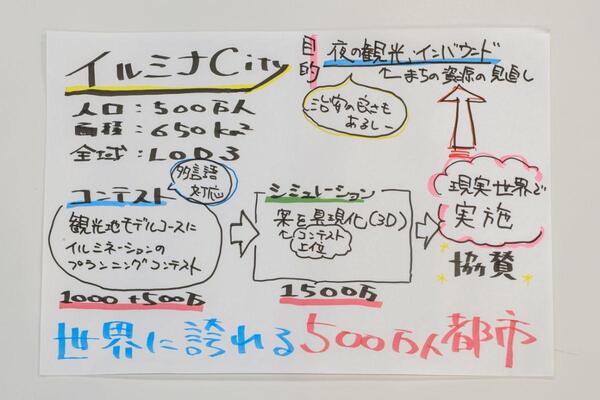 イルミナCity
人口：500万人
面積：650km²
全域：LOD3
目的
夜の観光、インバウンド
←まちの資源の見直し
治安の良さもあるしー
コンテスト
多言語対応
観光地モデルコースに
イルミネーションの
プランニングコンテスト
1000+500万
シミュレーション
案を具現化(3D)
←コンテスト
上位
1500万
現実世界で
実施
協賛
世界に誇れる500万人都市